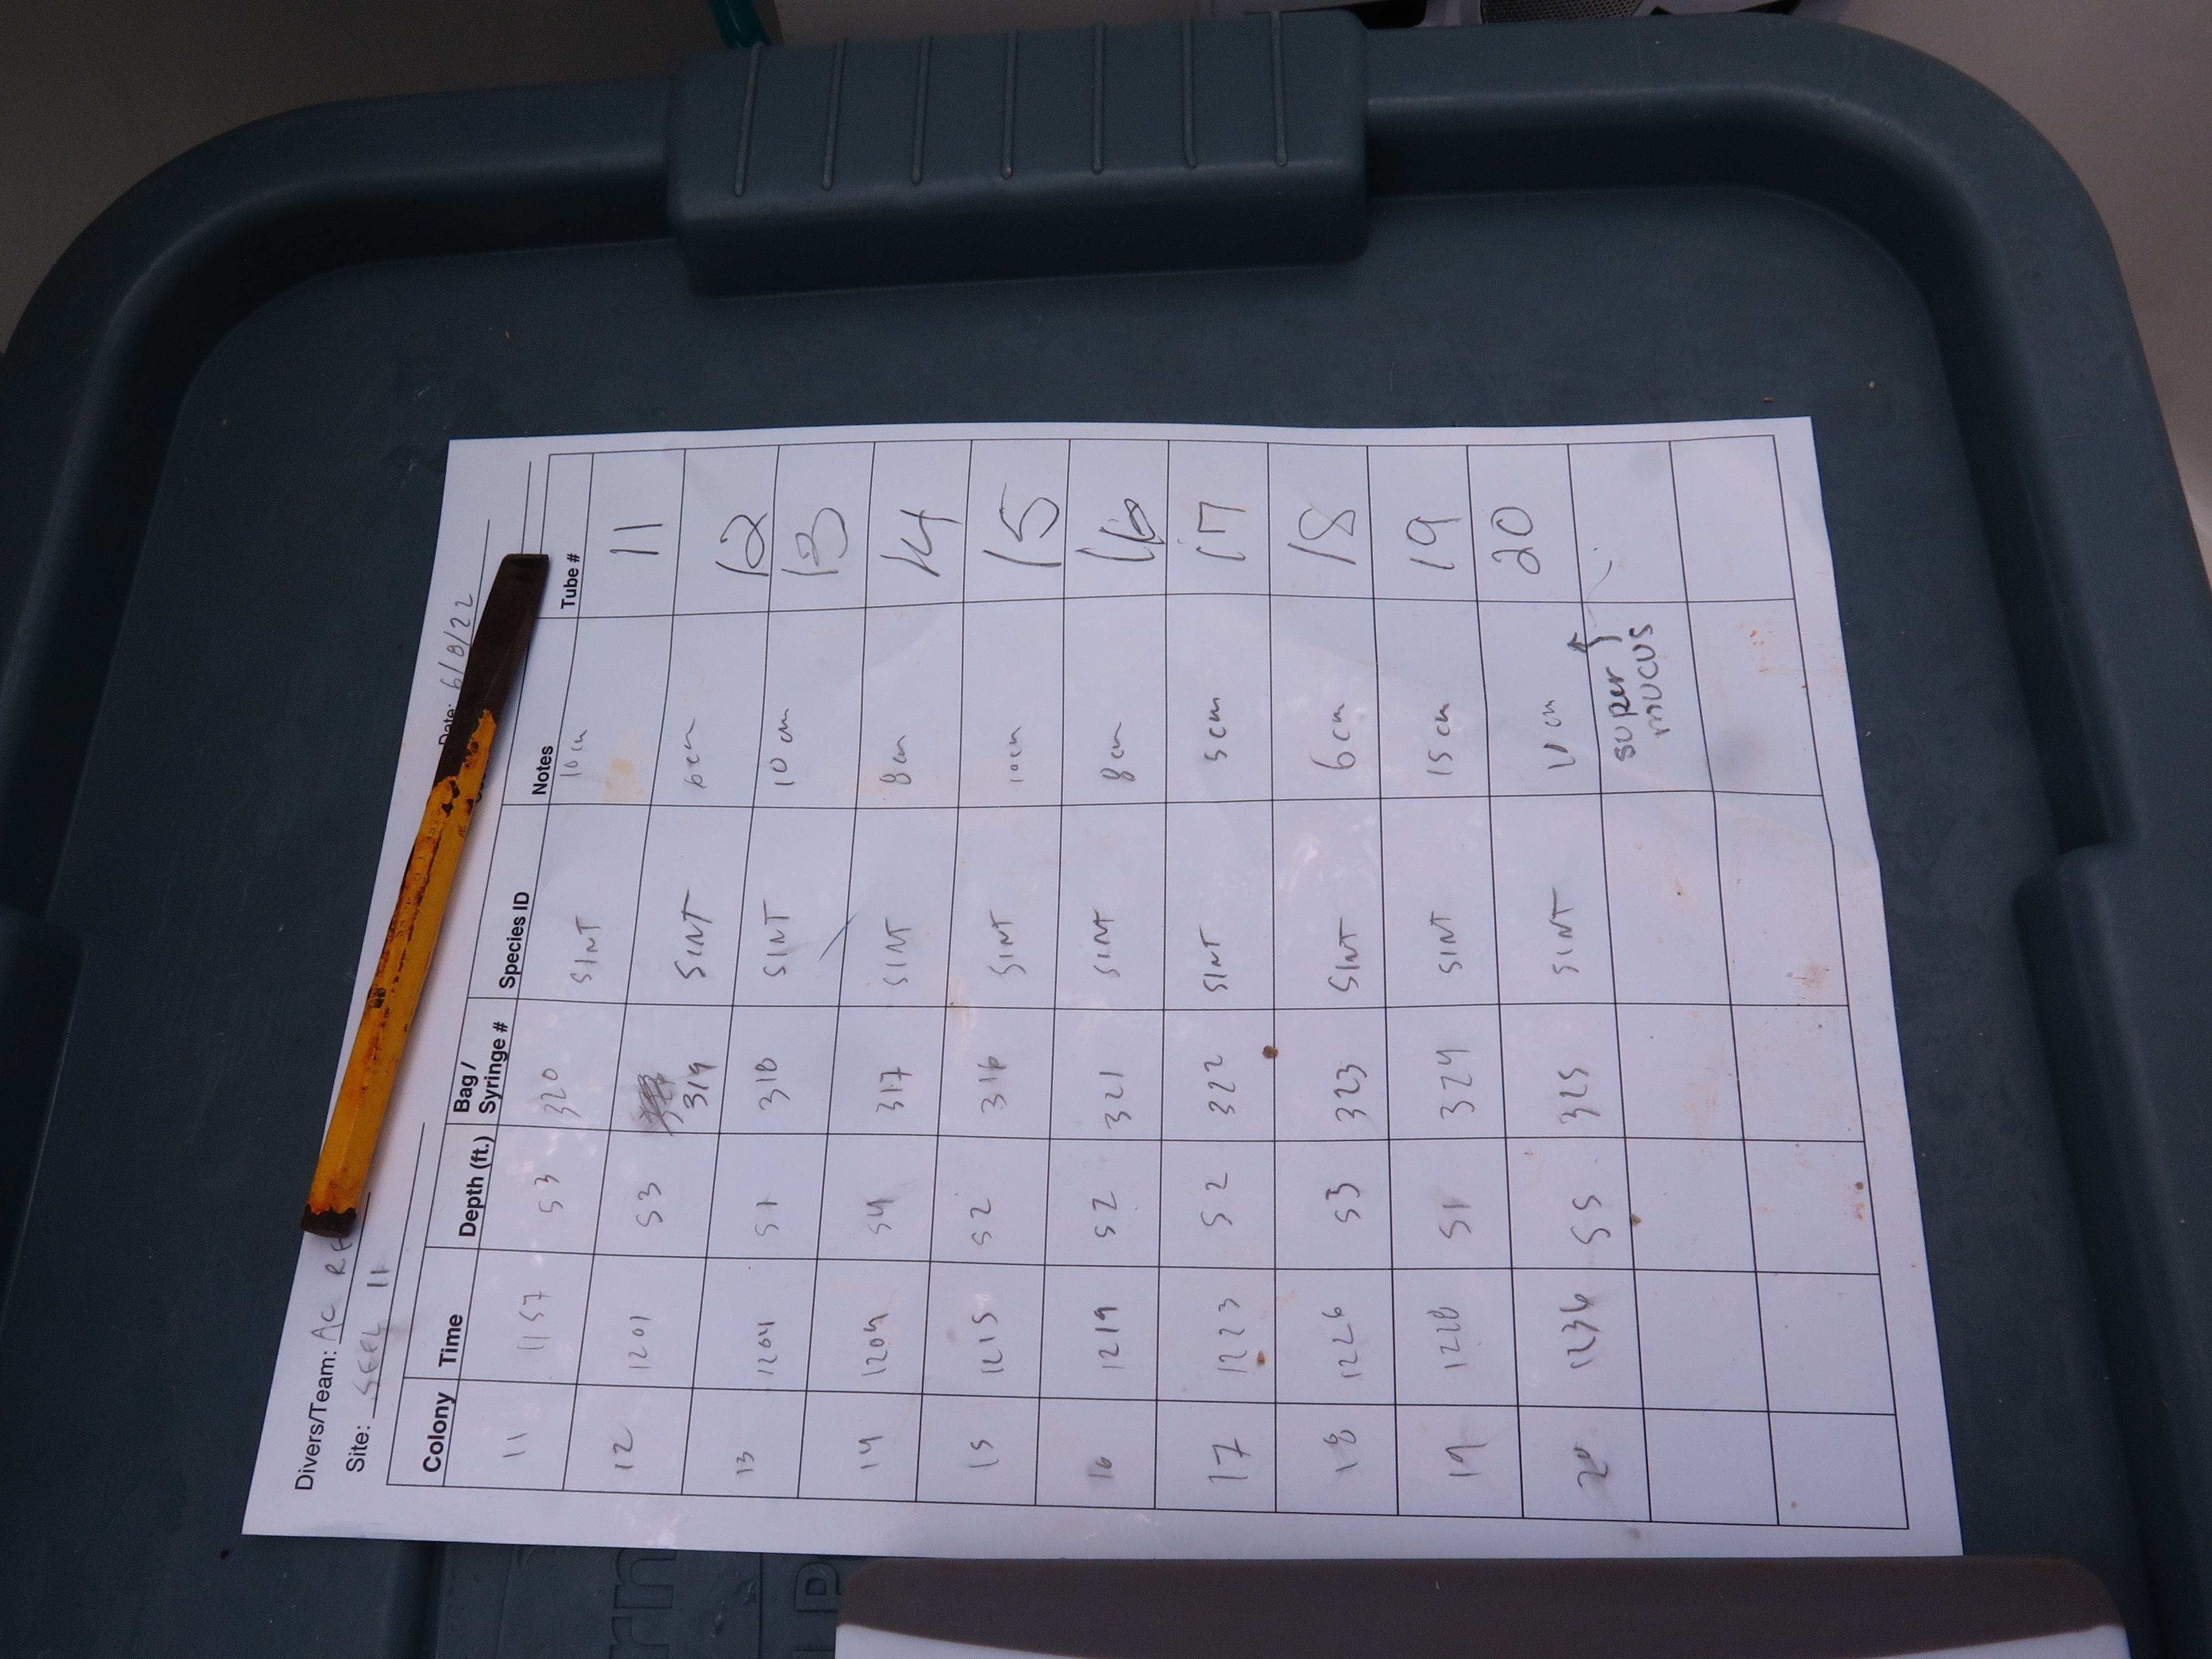 Divers/Team: AC
Date: 6/8/22
Site: SEFL 11
Colony Time Depth (ft.) Bag / Syringe # Species ID Notes Tube #
11 1157 53 320 SINT 10cm 11
12 1201 53 319 SINT 6cm 12
13 1204 51 318 SINT 10cm 13
14 1209 54 317 SINT 8cm 14
15 1215 52 316 SINT 10cm 15
16 1219 52 321 SINT 8cm 16
17 1223 52 322 SINT 5cm 17
18 1226 53 323 SINT 6cm 18
19 1228 51 324 SINT 15cm 19
20 1236 55 325 SINT 11cm 20
super
mucus